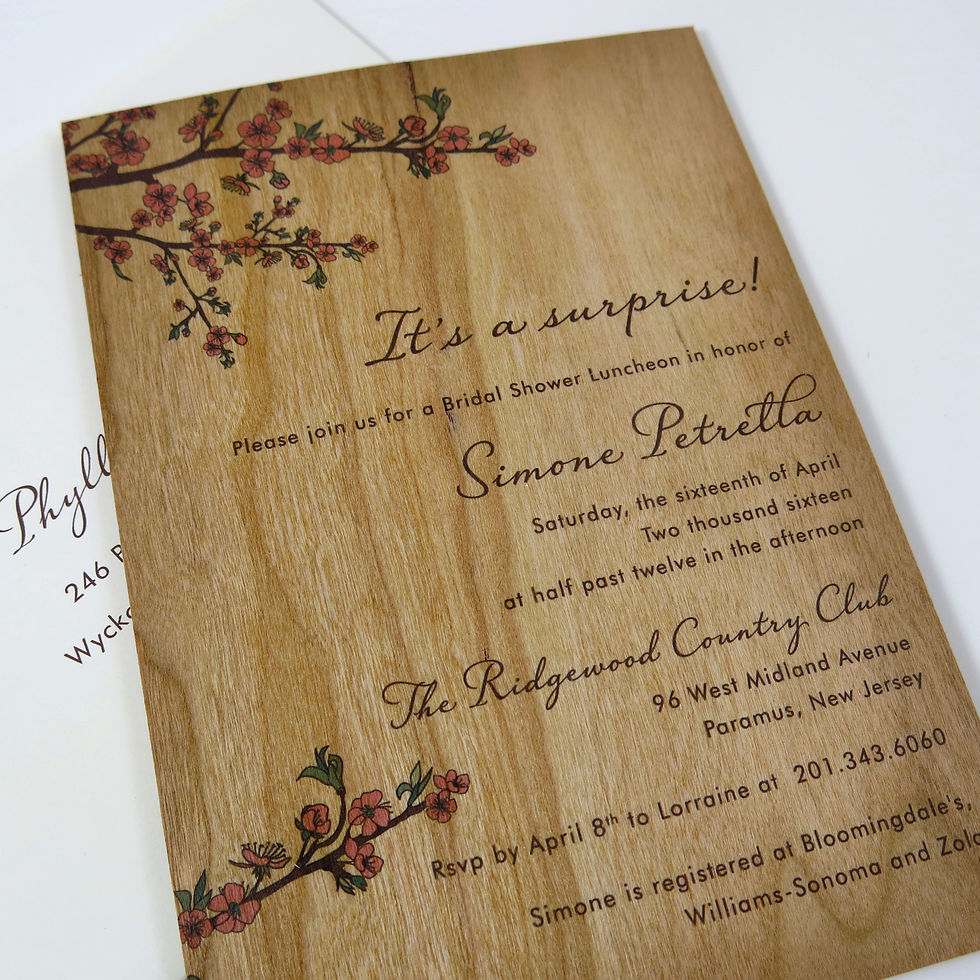 It's a surprise!
Please join us for a Bridal Shower Luncheon in honor of
Simone Petrella
Saturday, the sixteenth of April
Two thousand sixteen
at half past twelve in the afternoon
The Ridgewood Country Club
96 West Midland Avenue
Paramus, New Jersey
Rsvp by April 8th to Lorraine at 201.343.6060
Simone is registered at Bloomingdale's,
Williams-Sonoma and
246